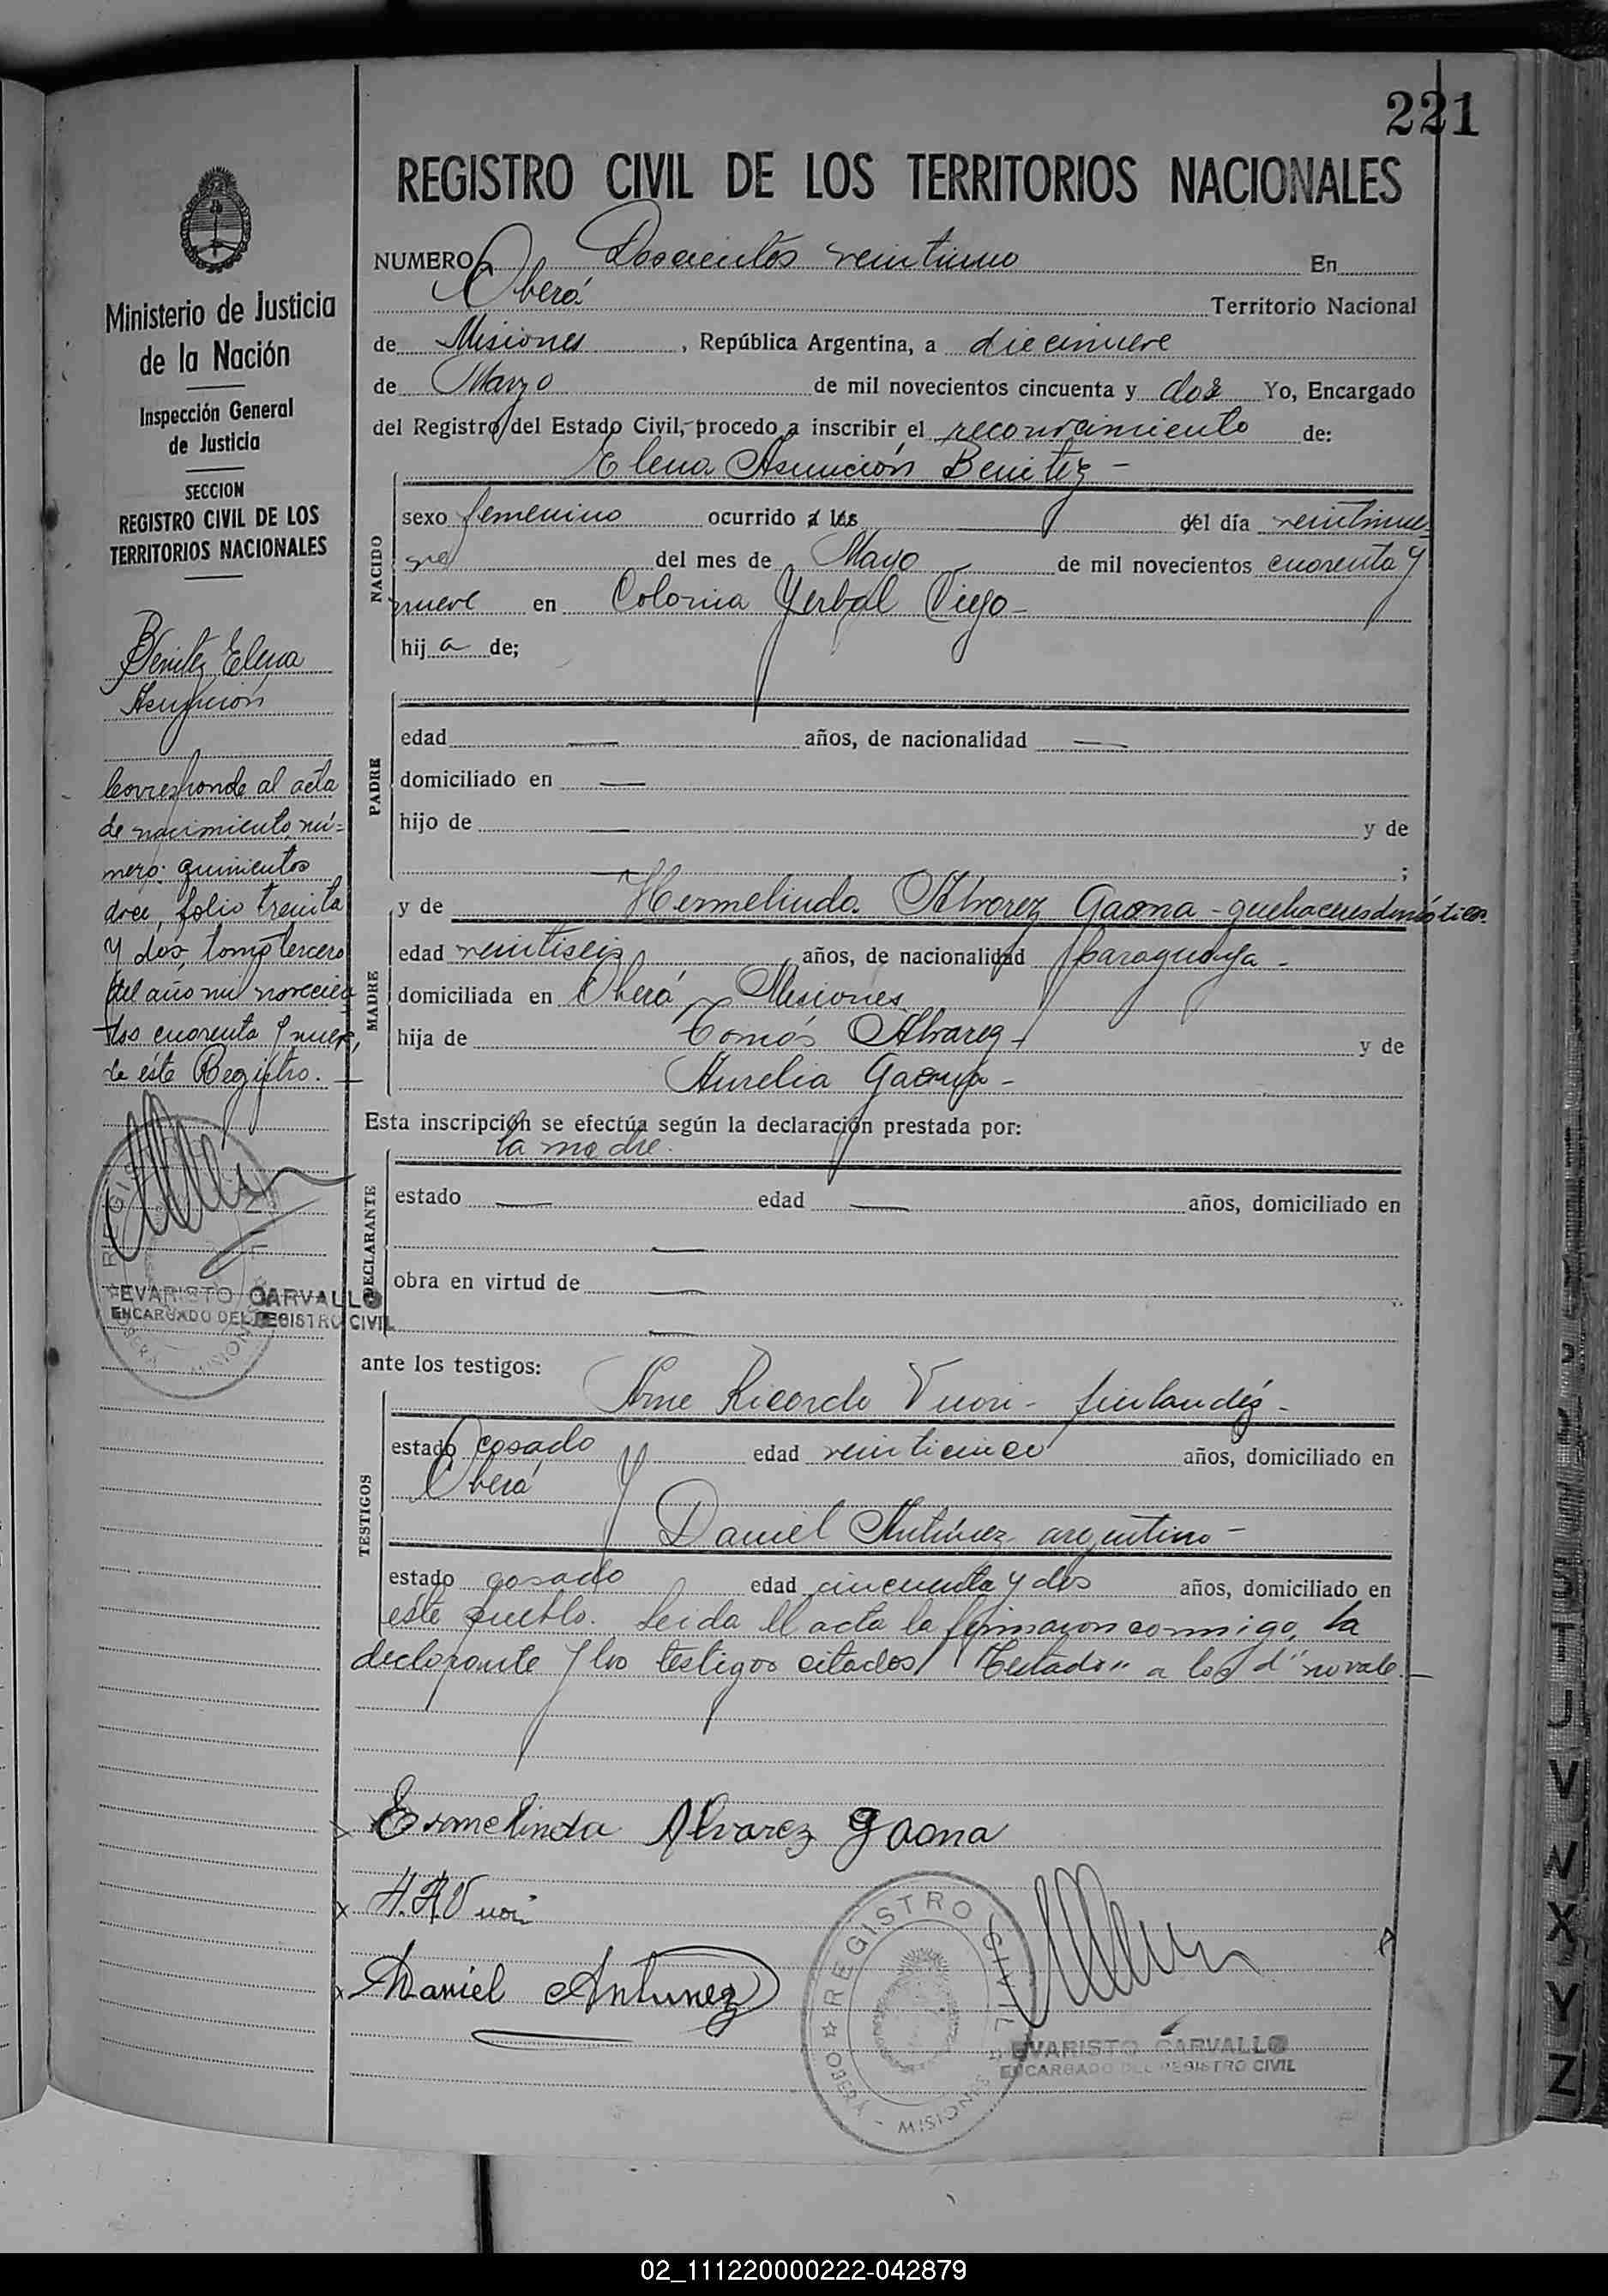 221
REGISTRO CIVIL DE LOS TERRITORIOS NACIONALES
Ministerio de Justicia
de la Nación
Inspección General
de Justicia
SECCION
REGISTRO CIVIL DE LOS
TERRITORIOS NACIONALES
Benitez Elena
Asunción
Corresponde al acta
de nacimiento nú=
mero: quinientos
doce, folio treinta
y dos, tomo tercero
del año mil novecien
tos cuarenta y nueve,
de éste Registro.
EVARISTO CARVALLO
ENCARGADO DEL REGISTRO CIVIL
NUMERO Doscientos veintiuno En
Oberá Territorio Nacional
de Misiones, República Argentina, a diecinueve
de Marzo de mil novecientos cincuenta y dos Yo, Encargado
del Registro del Estado Civil, procedo a inscribir el reconocimiento de:
Elena Asunción Benitez -
NACIDO
sexo femenino ocurrido a las del día veintinue
ve del mes de Mayo de mil novecientos cuarenta y
nueve en Colonia Yerbal Viejo -
hij a de;
PADRE
edad — años, de nacionalidad —
domiciliado en —
hijo de — y de
— ;
MADRE
y de Hermelinda Alvarez Gaona - quehaceres domésticos
edad veintiseis años, de nacionalidad paraguaya -
domiciliada en Oberá, Misiones
hija de Tomás Alvarez - y de
Aurelia Gaona -
Esta inscripción se efectúa según la declaración prestada por:
la madre.
DECLARANTE
estado — edad — años, domiciliado en
—
obra en virtud de —
—
ante los testigos:
TESTIGOS
Arne Ricardo Vuori - finlandés -
estado casado edad veinticinco años, domiciliado en
Oberá y
Daniel Antúnez argentino -
estado casado edad cincuenta y dos años, domiciliado en
éste pueblo. Leida el acta la firmaron conmigo, la
declarante y los testigos citados "Testado" a las d" no vale.—
Ermelinda Alvarez gaona
x A.R.Vuori
x Daniel Antunez
REGISTRO CIVIL
OBERA - MISIONES
EVARISTO CARVALLO
ENCARGADO DEL REGISTRO CIVIL
T
U
V
W
X
Y
Z
02_111220000222-042879